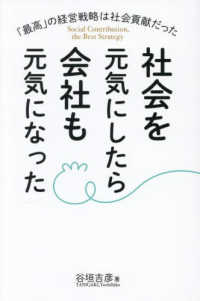 「最高」の経営戦略は社会貢献だった
Social Contribution,
the Best Strategy
社会を
元気にしたら
会社も
元気になった
谷垣吉彦 著
TANIGAKI, Yoshihiko